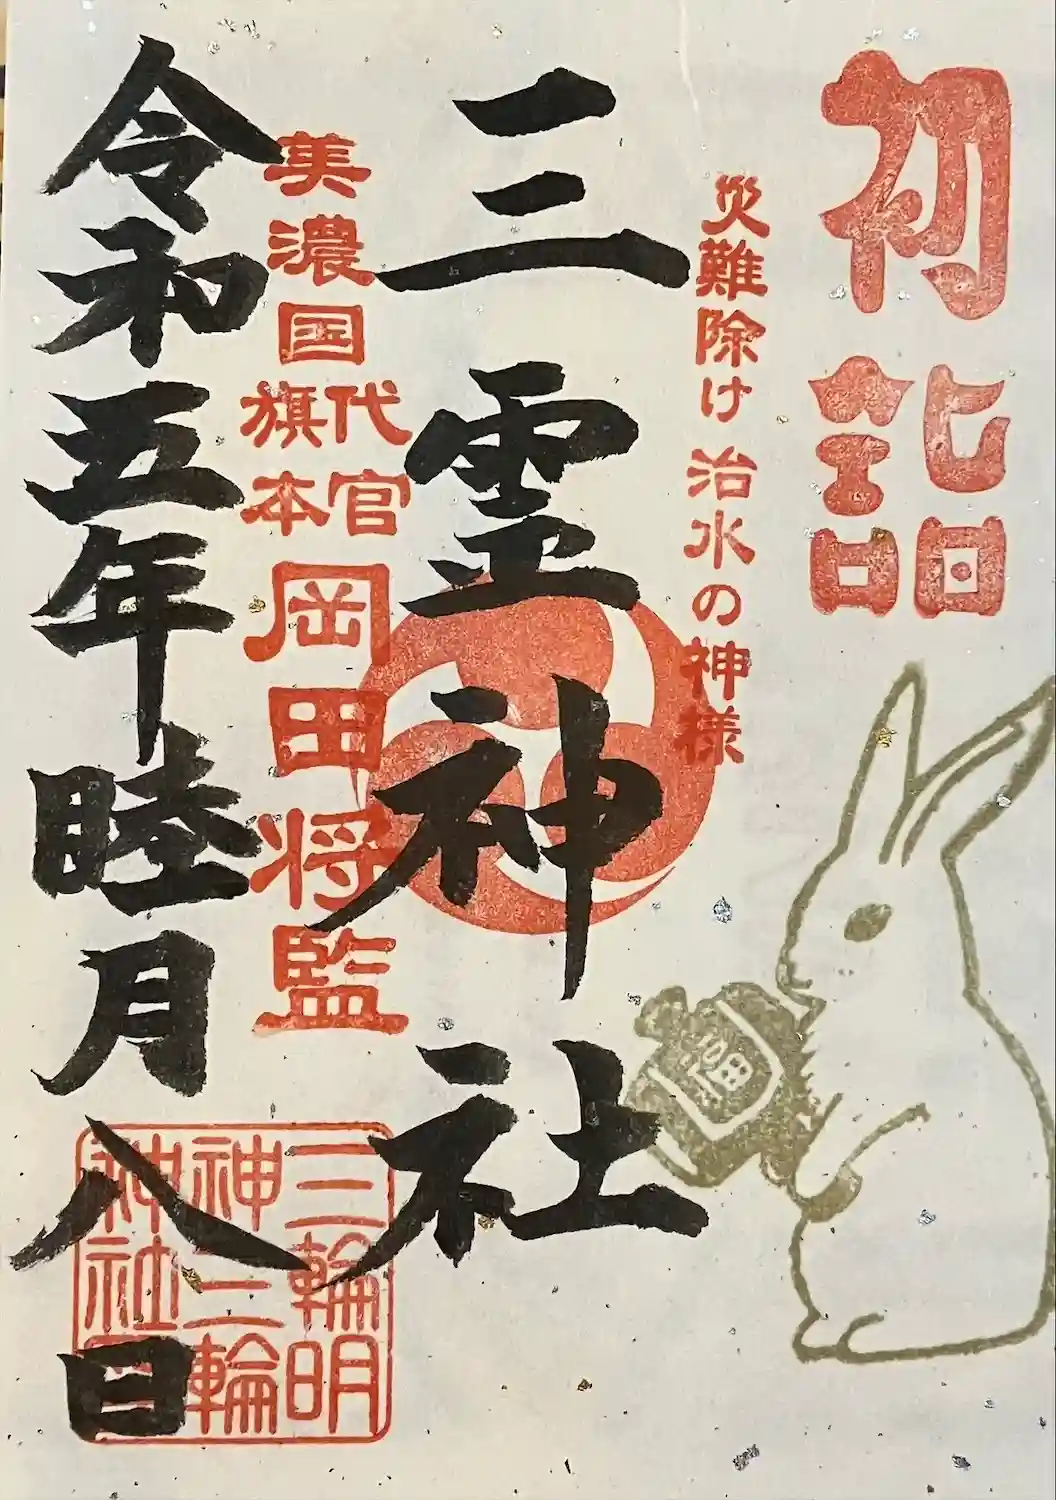 初詣
災難除け 治水の神様
三霊神社
美濃国
代官
旗本
岡田将監
令和五年睦月八日
福
三輪明
神三輪
神社